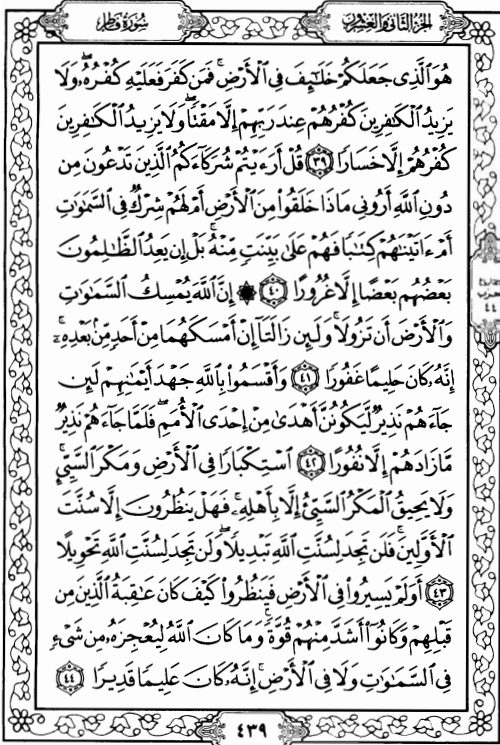 الجزء الثاني والعشرون
سورة فاطر
هُوَ ٱلَّذِي جَعَلَكُمْ خَلَـٰٓئِفَ فِي ٱلْأَرْضِ ۚ فَمَن كَفَرَ فَعَلَيْهِ كُفْرُهُۥ ۖ وَلَا
يَزِيدُ ٱلْكَـٰفِرِينَ كُفْرُهُمْ عِندَ رَبِّهِمْ إِلَّا مَقْتًا ۖ وَلَا يَزِيدُ ٱلْكَـٰفِرِينَ
كُفْرُهُمْ إِلَّا خَسَارًا ٣٩ قُلْ أَرَءَيْتُمْ شُرَكَآءَكُمُ ٱلَّذِينَ تَدْعُونَ مِن
دُونِ ٱللَّهِ أَرُونِي مَاذَا خَلَقُوا۟ مِنَ ٱلْأَرْضِ أَمْ لَهُمْ شِرْكٌ فِي ٱلسَّمَـٰوَٰتِ
أَمْ ءَاتَيْنَـٰهُمْ كِتَـٰبًا فَهُمْ عَلَىٰ بَيِّنَتٍ مِّنْهُ ۚ بَلْ إِن يَعِدُ ٱلظَّـٰلِمُونَ
بَعْضُهُم بَعْضًا إِلَّا غُرُورًا ٤٠ ۞ إِنَّ ٱللَّهَ يُمْسِكُ ٱلسَّمَـٰوَٰتِ
وَٱلْأَرْضَ أَن تَزُولَا ۚ وَلَئِن زَالَتَآ إِنْ أَمْسَكَهُمَا مِنْ أَحَدٍ مِّنۢ بَعْدِهِۦٓ ۚ
إِنَّهُۥ كَانَ حَلِيمًا غَفُورًا ٤١ وَأَقْسَمُوا۟ بِٱللَّهِ جَهْدَ أَيْمَـٰنِهِمْ لَئِن
جَآءَهُمْ نَذِيرٌ لَّيَكُونُنَّ أَهْدَىٰ مِنْ إِحْدَى ٱلْأُمَمِ ۖ فَلَمَّا جَآءَهُمْ نَذِيرٌ
مَّا زَادَهُمْ إِلَّا نُفُورًا ٤٢ ٱسْتِكْبَارًا فِي ٱلْأَرْضِ وَمَكْرَ ٱلسَّيِّئِ ۚ
وَلَا يَحِيقُ ٱلْمَكْرُ ٱلسَّيِّئُ إِلَّا بِأَهْلِهِۦ ۚ فَهَلْ يَنظُرُونَ إِلَّا سُنَّتَ
ٱلْأَوَّلِينَ ۚ فَلَن تَجِدَ لِسُنَّتِ ٱللَّهِ تَبْدِيلًا ۖ وَلَن تَجِدَ لِسُنَّتِ ٱللَّهِ تَحْوِيلًا
٤٣ أَوَلَمْ يَسِيرُوا۟ فِي ٱلْأَرْضِ فَيَنظُرُوا۟ كَيْفَ كَانَ عَـٰقِبَةُ ٱلَّذِينَ مِن
قَبْلِهِمْ وَكَانُوٓا۟ أَشَدَّ مِنْهُمْ قُوَّةً ۚ وَمَا كَانَ ٱللَّهُ لِيُعْجِزَهُۥ مِن شَيْءٍ
فِي ٱلسَّمَـٰوَٰتِ وَلَا فِي ٱلْأَرْضِ ۚ إِنَّهُۥ كَانَ عَلِيمًا قَدِيرًا ٤٤
٤٣٩